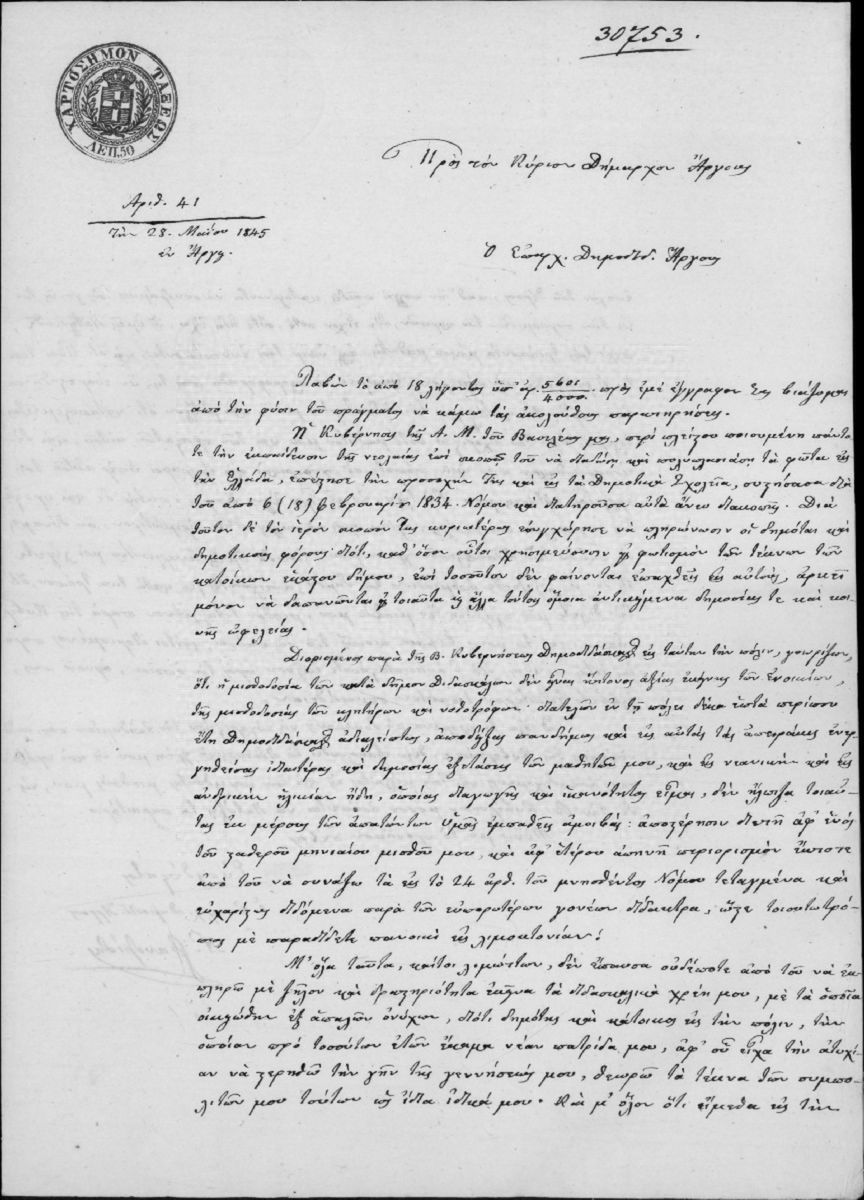 30753.
ΧΑΡΤΟΣΗΜΟΝ ΤΑΞΕΩΣ
ΛΕΠ. 50
Πρὸς τὸν Κύριον Δήμαρχον Ἄργους
Ἀριθ. 41
τὴν 28 Μαΐου 1845
ἐν Ἄργει.
Ὁ Ἐπαρχ. Δημοδιδ. Ἄργους
Λαβὼν τὸ ἀπὸ 18 λήγοντος ὑπ' ἀρ. 5601/4000 πρὸς ἐμὲ ἔγγραφόν Σας βιάζομαι
ἀπὸ τὴν φύσιν τοῦ πράγματος νὰ κάμω τὰς ἀκολούθους παρατηρήσεις.
Ἡ Κυβέρνησις τῆς Α. Μ. τοῦ Βασιλέως μας, περὶ πλείστου ποιουμένη πάντο-
τε τὴν ἐκπαίδευσιν τῆς νεολαίας ἐπὶ σκοπῷ τοῦ νὰ διαδώσῃ καὶ πολυπλασιάσῃ τὰ φῶτα εἰς
τὴν Ἑλλάδα, ἐπέστησε τὴν προσοχήν Της καὶ εἰς τὰ Δημοτικὰ Σχολεῖα, συστήσασα διὰ
τοῦ ἀπὸ 6 (18) Φεβρουαρίου 1834. Νόμου καὶ διατηροῦσα αὐτὰ ἄνευ διακοπῆς. Διὰ
τοῦτον δὲ τὸν ἱερὸν σκοπόν Της κυριωτέρως ἐσυγχώρησε νὰ πληρώνωσιν οἱ δημόται καὶ
δημοτικοὺς φόρους· διότι, καθ' ὅσον οὗτοι χρησιμεύουσιν εἰς φωτισμὸν τῶν τέκνων τῶν
κατοίκων ἑκάστου δήμου, ἐπὶ τοσοῦτον δὲν φαίνονται ἐπαχθεῖς εἰς αὐτούς, ἀρκεῖ
μόνον νὰ δαπανῶνται εἰς τοιαῦτα καὶ ἄλλα τούτοις ὅμοια ἀντικείμενα δημοσίας τε καὶ κοι-
νῆς ὠφελείας.
Διορισμένος παρὰ τῆς Β. Κυβερνήσεως Δημοδιδάσκαλος εἰς ταύτην τὴν πόλιν, γνωρίζων,
ὅτι ἡ μισθοδοσία τῶν κατὰ δῆμον Διδασκάλων δὲν εἶναι ἥττονος ἀξίας ἐκείνης τῶν ἐνοικίων,
τῆς μισθοδοσίας τῶν κλητήρων καὶ νοθοτρόφων· διατελῶν ἐν τῇ πόλει δέκα ἑπτὰ περίπου
ἔτη Δημοδιδάσκαλος ἀδιαλείπτως, ἀποδείξας πανδήμως καὶ εἰς αὐτὰς τὰς ἀπείρους ἐνερ-
γηθείσας ἰδιαιτέρας καὶ δημοσίας ἐξετάσεις τῶν μαθητῶν μου, καὶ εἰς νεανικὴν καὶ εἰς
ἀνδρικὴν ἡλικίαν ἤδη, ὁποίας διαγωγῆς καὶ ἱκανότητος εἶμαι, δὲν ἤλπιζα τοιαύ-
τας ἐκ μέρους τῶν ἀπαιτούντων Ὑμᾶς ἐμπαθεῖς ἀμοιβάς: ἀποστέρησιν δεινὴν ἀφ' ἑνὸς
τοῦ σταθεροῦ μηνιαίου μισθοῦ μου, καὶ ἀφ' ἑτέρου ἀπηνῆ περιορισμὸν ἔκτοτε
ἀπὸ τοῦ νὰ συνάξω τὰ εἰς τὸ 24 ἄρθ. τοῦ μνησθέντος Νόμου τεταγμένα καὶ
εὐχαρίστως διδόμενα παρὰ τῶν εὐπορωτέρων γονέων δίδακτρα, ὥστε τοιουτοτρό-
πως μὲ παραδίδετε πανοικεὶ εἰς λιμοκτονίαν!
Μ' ὅλα ταῦτα, καίτοι λιμώττων, δὲν ἔπαυσα οὐδέποτε ἀπὸ τοῦ νὰ ἐκ-
πληρῶ μὲ ζῆλον καὶ δραστηριότητα ἐκεῖνα τὰ διδασκαλικὰ χρέη μου, μὲ τὰ ὁποῖα
ᾠκειώθην ἐξ ἁπαλῶν ὀνύχων, διότι δημότης καὶ κάτοικος εἰς τὴν πόλιν, τὴν
ὁποίαν πρὸ τοσούτων ἐτῶν ἔκαμα νέαν πατρίδα μου, ἀφ' οὗ εἶχα τὴν ἀτυχί-
αν νὰ στερηθῶ τὴν γῆν τῆς γεννήσεώς μου, θεωρῶ τὰ τέκνα τῶν συμπο-
λιτῶν μου τούτων ὡς ἴδια ἰδικά μου. Καὶ μ' ὅλον ὅτι εἴμεθα εἰς τὴν